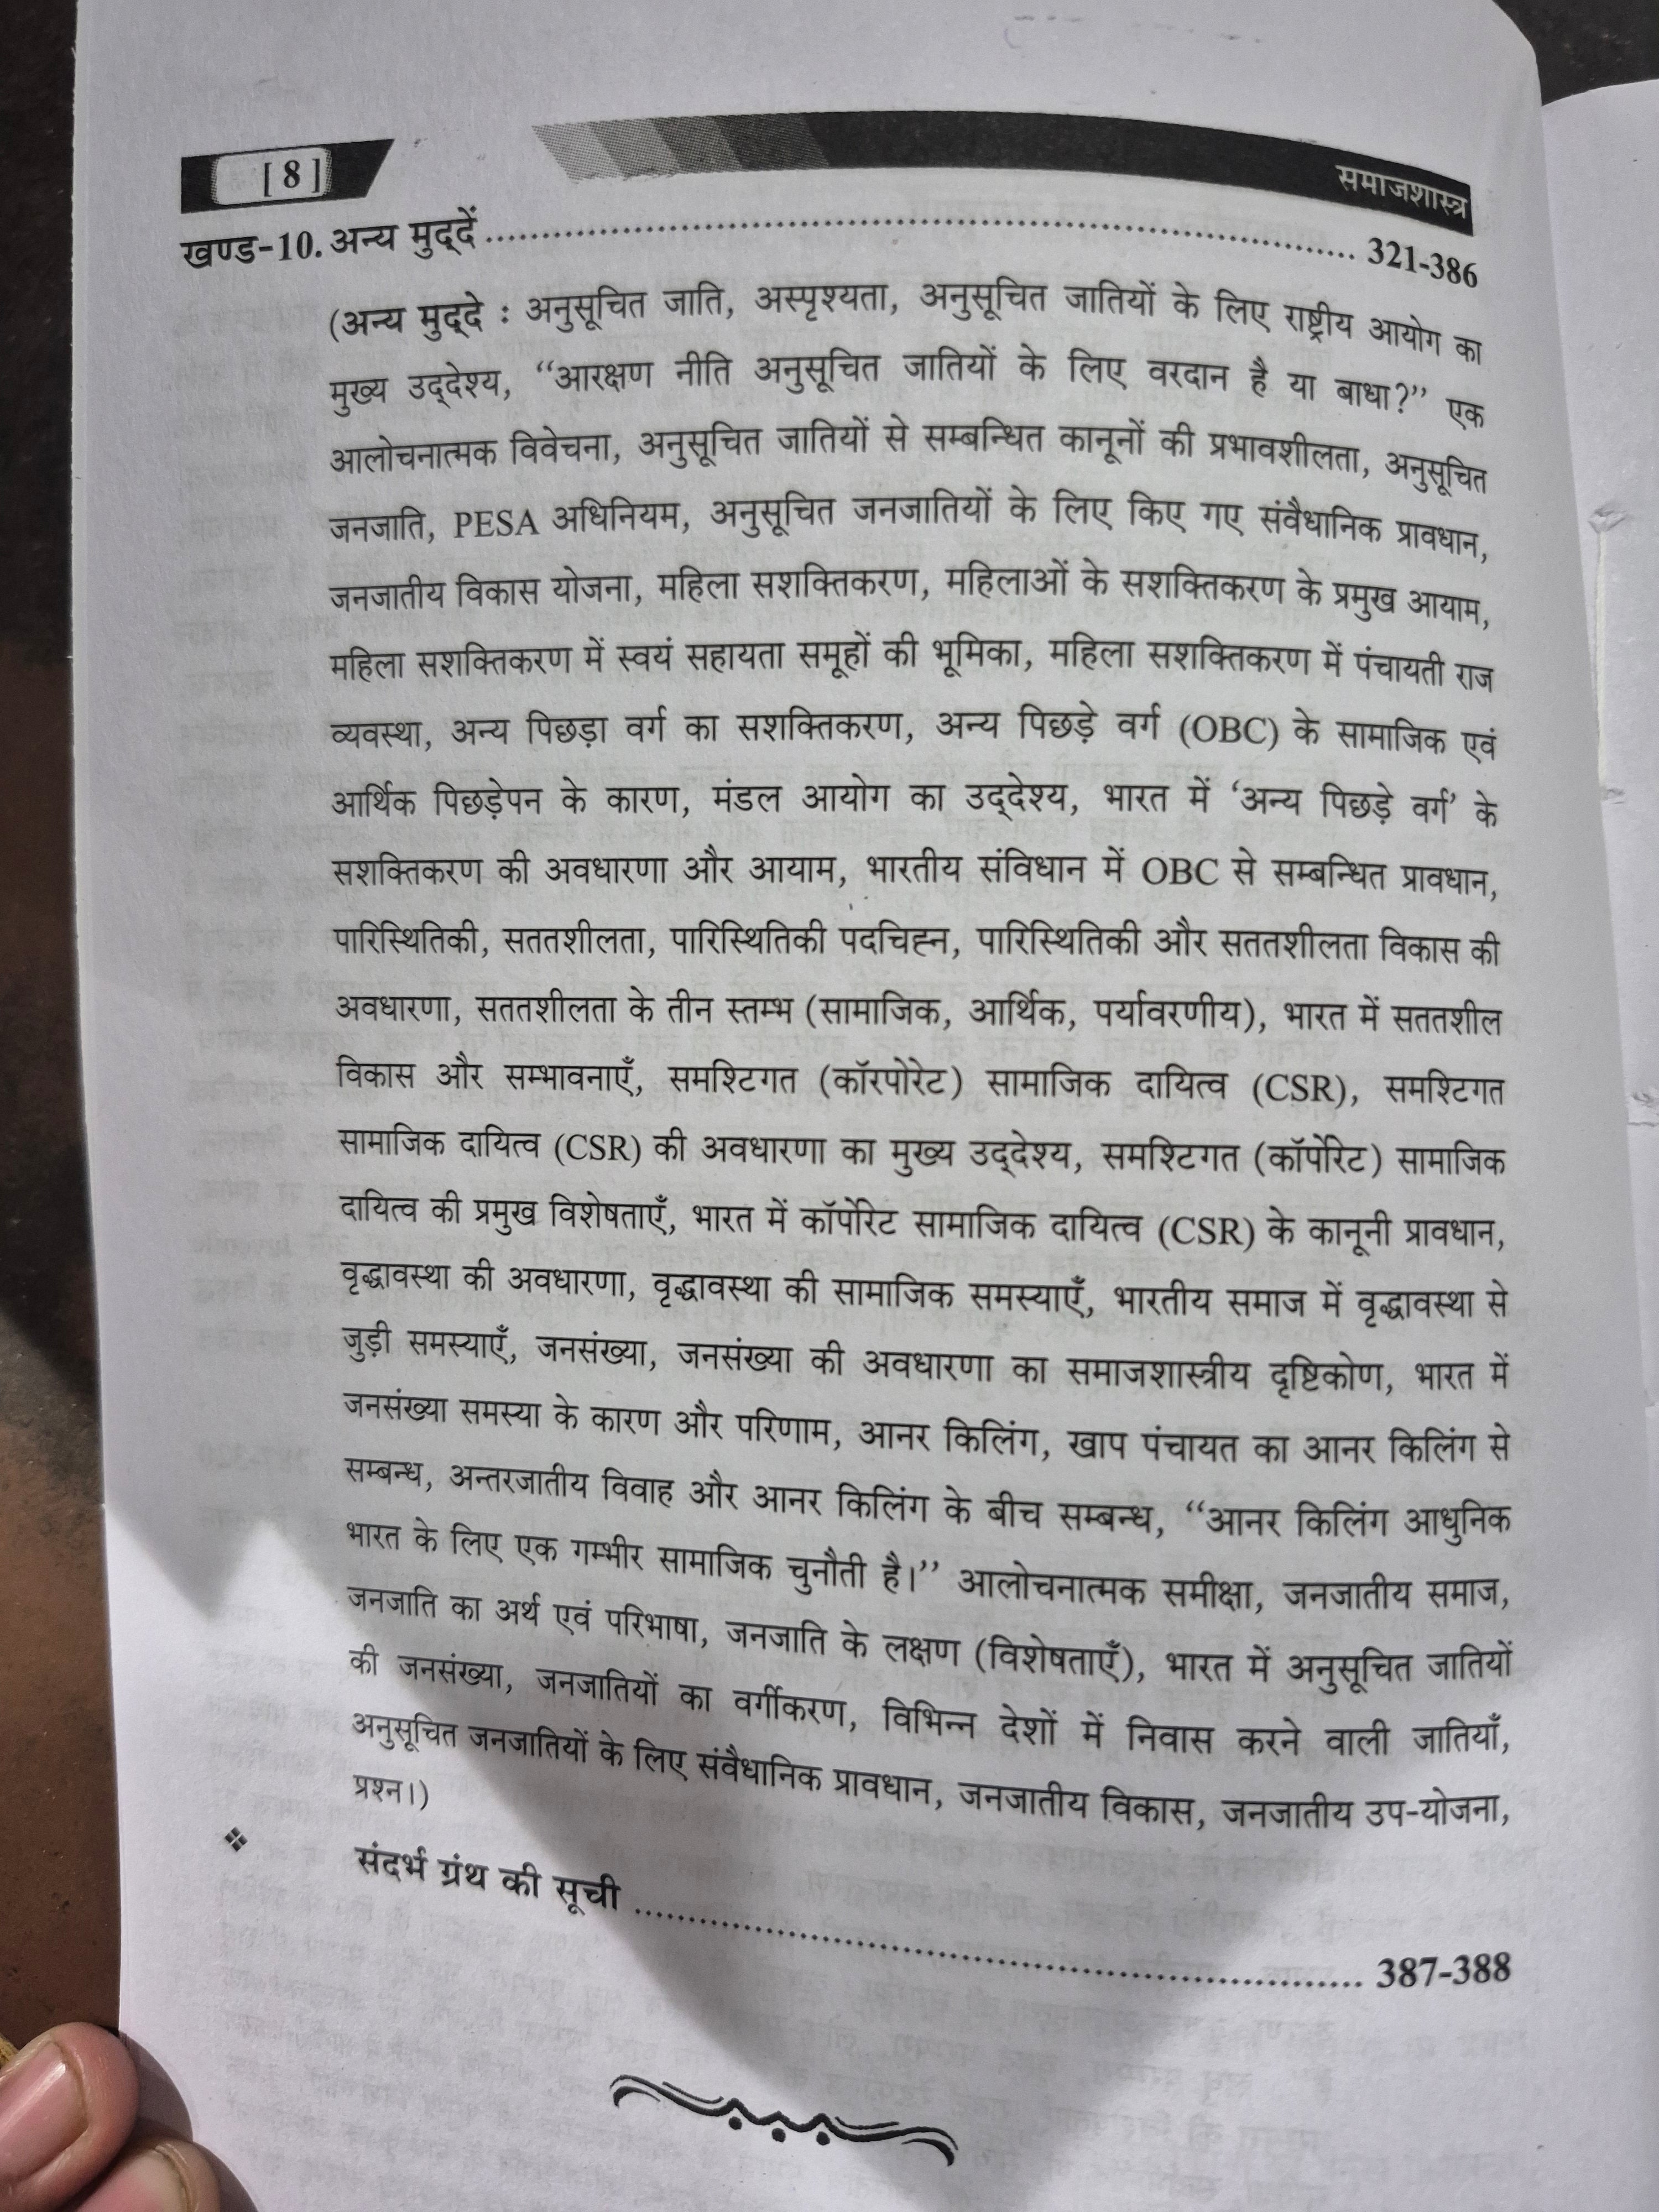 [ 8 ]
समाजशास्त्र
खण्ड-10. अन्य मुद्दें ........................................ 321-386
(अन्य मुद्दे : अनुसूचित जाति, अस्पृश्यता, अनुसूचित जातियों के लिए राष्ट्रीय आयोग का
मुख्य उद्देश्य, “आरक्षण नीति अनुसूचित जातियों के लिए वरदान है या बाधा?” एक
आलोचनात्मक विवेचना, अनुसूचित जातियों से सम्बन्धित कानूनों की प्रभावशीलता, अनुसूचित
जनजाति, PESA अधिनियम, अनुसूचित जनजातियों के लिए किए गए संवैधानिक प्रावधान,
जनजातीय विकास योजना, महिला सशक्तिकरण, महिलाओं के सशक्तिकरण के प्रमुख आयाम,
महिला सशक्तिकरण में स्वयं सहायता समूहों की भूमिका, महिला सशक्तिकरण में पंचायती राज
व्यवस्था, अन्य पिछड़ा वर्ग का सशक्तिकरण, अन्य पिछड़े वर्ग (OBC) के सामाजिक एवं
आर्थिक पिछड़ेपन के कारण, मंडल आयोग का उद्देश्य, भारत में ‘अन्य पिछड़े वर्ग’ के
सशक्तिकरण की अवधारणा और आयाम, भारतीय संविधान में OBC से सम्बन्धित प्रावधान,
पारिस्थितिकी, सततशीलता, पारिस्थितिकी पदचिह्न, पारिस्थितिकी और सततशीलता विकास की
अवधारणा, सततशीलता के तीन स्तम्भ (सामाजिक, आर्थिक, पर्यावरणीय), भारत में सततशील
विकास और सम्भावनाएँ, समश्टिगत (कॉरपोरेट) सामाजिक दायित्व (CSR), समश्टिगत
सामाजिक दायित्व (CSR) की अवधारणा का मुख्य उद्देश्य, समश्टिगत (कॉर्पोरेट) सामाजिक
दायित्व की प्रमुख विशेषताएँ, भारत में कॉर्पोरेट सामाजिक दायित्व (CSR) के कानूनी प्रावधान,
वृद्धावस्था की अवधारणा, वृद्धावस्था की सामाजिक समस्याएँ, भारतीय समाज में वृद्धावस्था से
जुड़ी समस्याएँ, जनसंख्या, जनसंख्या की अवधारणा का समाजशास्त्रीय दृष्टिकोण, भारत में
जनसंख्या समस्या के कारण और परिणाम, आनर किलिंग, खाप पंचायत का आनर किलिंग से
सम्बन्ध, अन्तरजातीय विवाह और आनर किलिंग के बीच सम्बन्ध, “आनर किलिंग आधुनिक
भारत के लिए एक गम्भीर सामाजिक चुनौती है।” आलोचनात्मक समीक्षा, जनजातीय समाज,
जनजाति का अर्थ एवं परिभाषा, जनजाति के लक्षण (विशेषताएँ), भारत में अनुसूचित जातियों
की जनसंख्या, जनजातियों का वर्गीकरण, विभिन्न देशों में निवास करने वाली जातियाँ,
अनुसूचित जनजातियों के लिए संवैधानिक प्रावधान, जनजातीय विकास, जनजातीय उप-योजना,
प्रश्न।)
❖ संदर्भ ग्रंथ की सूची ........................................ 387-388